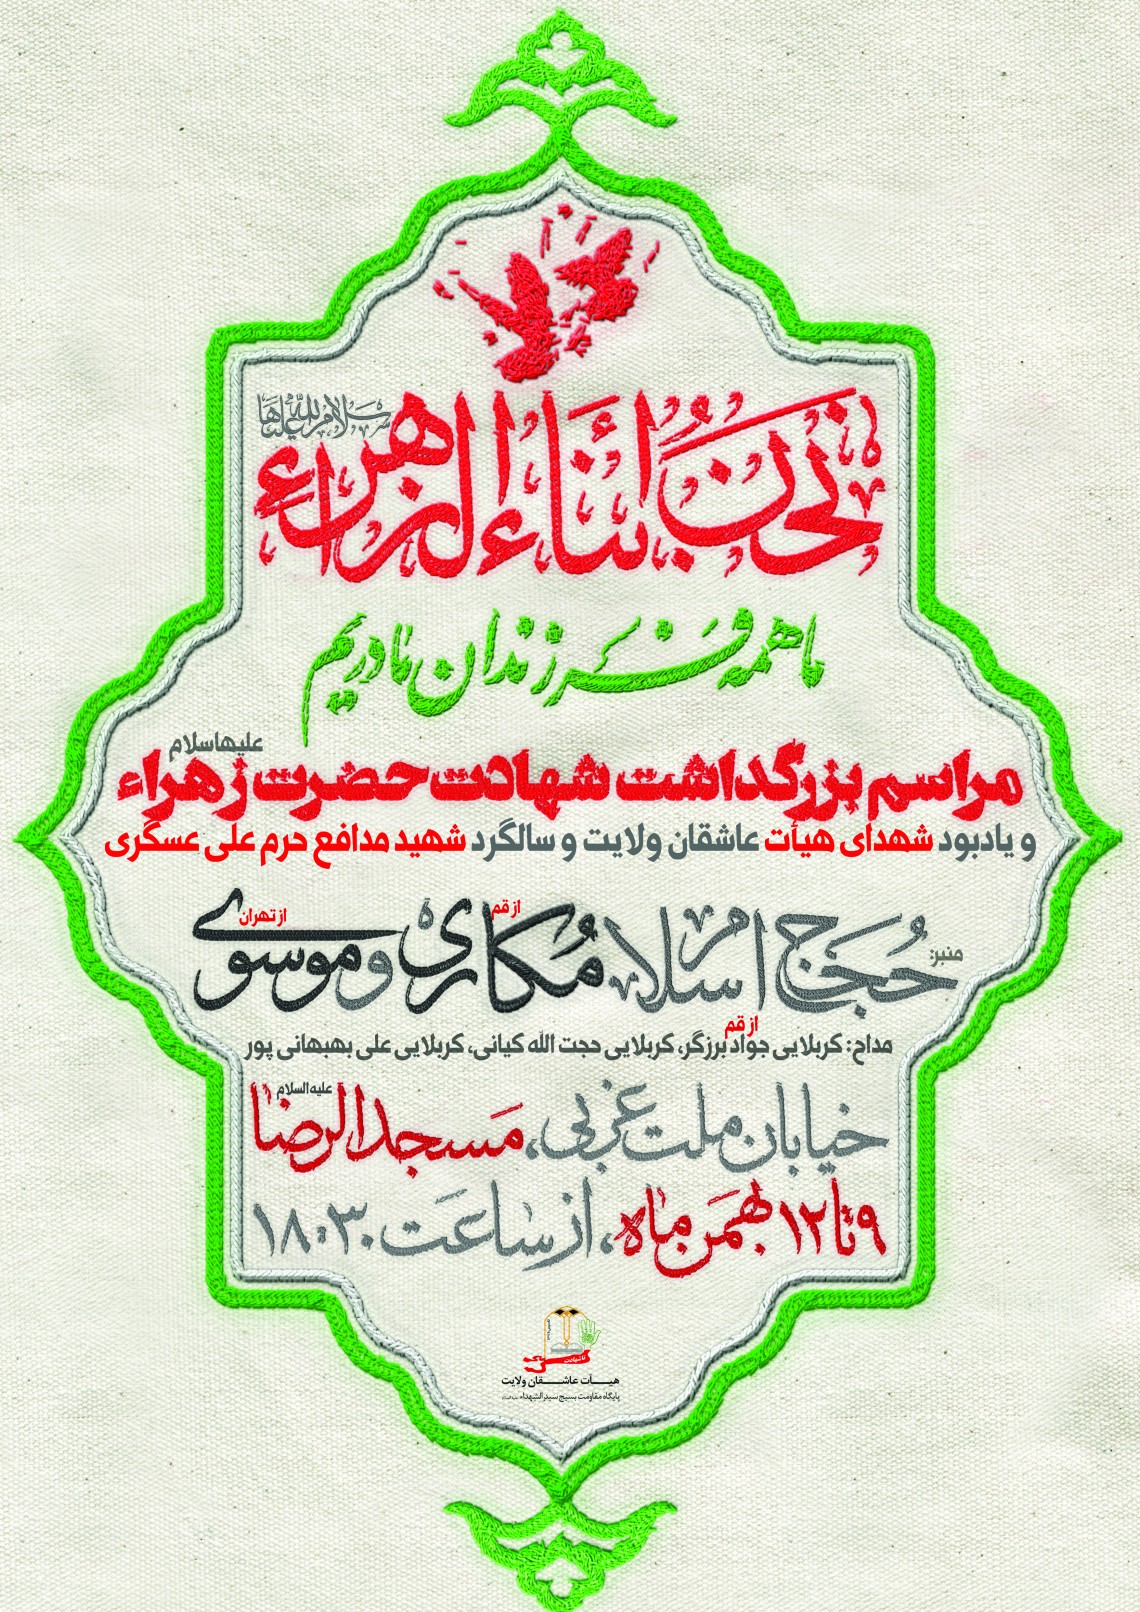 نحن ابناء الزهراء سلام الله علیها
ما همه فرزندان مادریم
مراسم بزرگداشت شهادت حضرت زهراء علیهاسلام
و یادبود شهدای هیأت عاشقان ولایت و سالگرد شهید مدافع حرم علی عسگری
منبر: حُجَج اسلام مُکاری از قم و موسوی از تهران
مداح: کربلایی جواد برزگر از قم، کربلایی حجت الله کیانی، کربلایی علی بهبهانی پور
خیابان ملت غربی، مسجد الرضا علیه السلام
۹ تا ۱۲ بهمن ماه، از ساعت ۱۸:۳۰
تا شهادت
هیــأت عاشــقان ولایت
پایگاه مقاومت بسیج سیدالشهداء